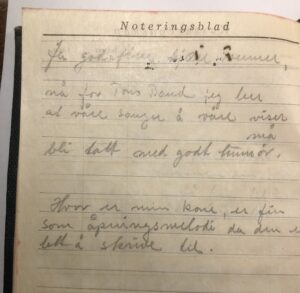 Noteringsblad
Ja godaften kjære venner,
nå for Tons Band jeg ber
at våre sanger å våre viser
må
bli tatt med godt humør.
Hvor er min kone, er fin
som åpningsmelodi da den e
lett å skrive til.